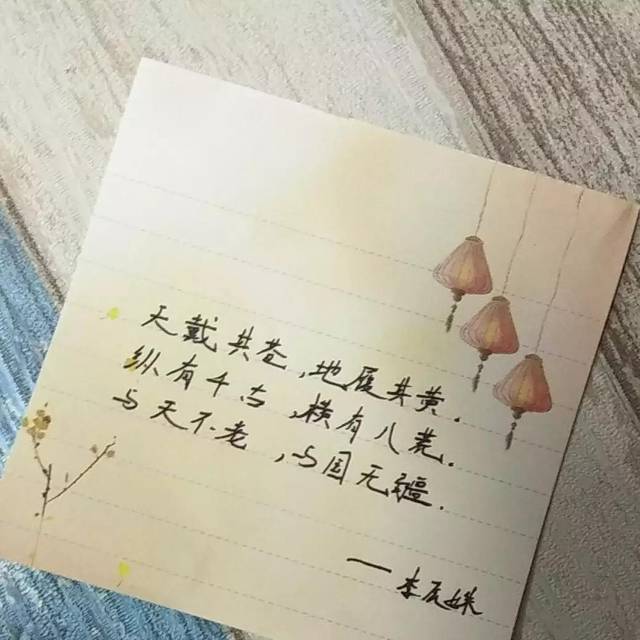 天戴其苍,地履其黄.
纵有千古,横有八荒.
与天不老,与国无疆.
——李辰姝